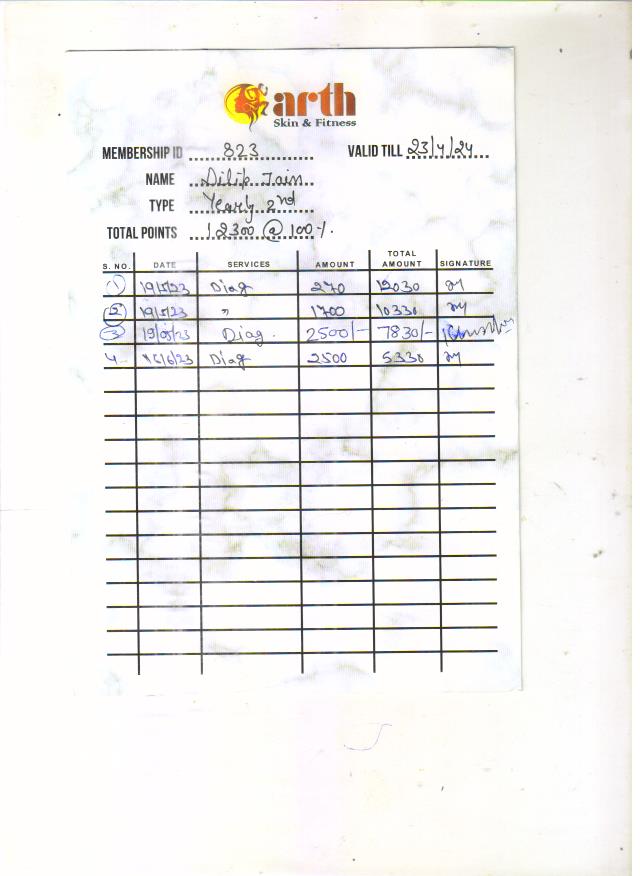 arth
Skin & Fitness
MEMBERSHIP ID 823 VALID TILL 23/4/24
NAME Dilip Jain
TYPE Yearly 2nd
TOTAL POINTS 12300 @ 100%.
S. NO. DATE SERVICES AMOUNT TOTAL AMOUNT SIGNATURE
1 19/5/23 Diag 270 12030
2 19/5/23 " 1700 10330
3 19/05/23 Diag. 2500/- 7830/-
4 /6/23 Diag 2500 5330